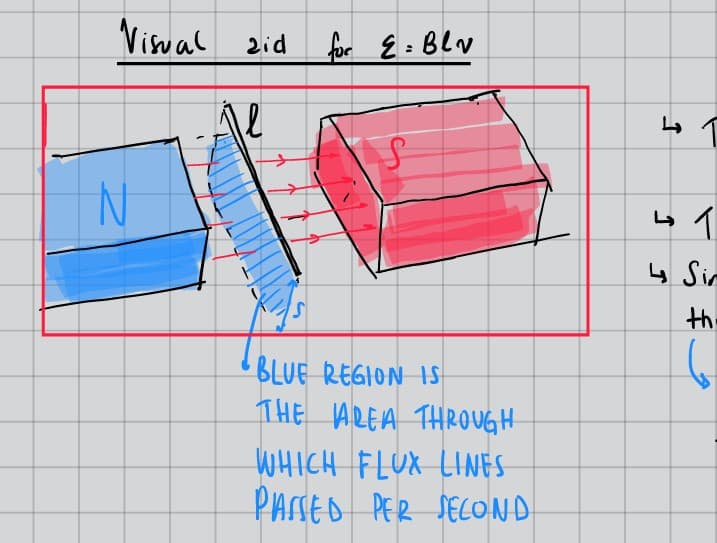 Visual aid for ε = Blv
l
N
S
s
BLUE REGION IS
THE AREA THROUGH
WHICH FLUX LINES
PASSED PER SECOND
↳ T
↳ T
↳ Sin
th